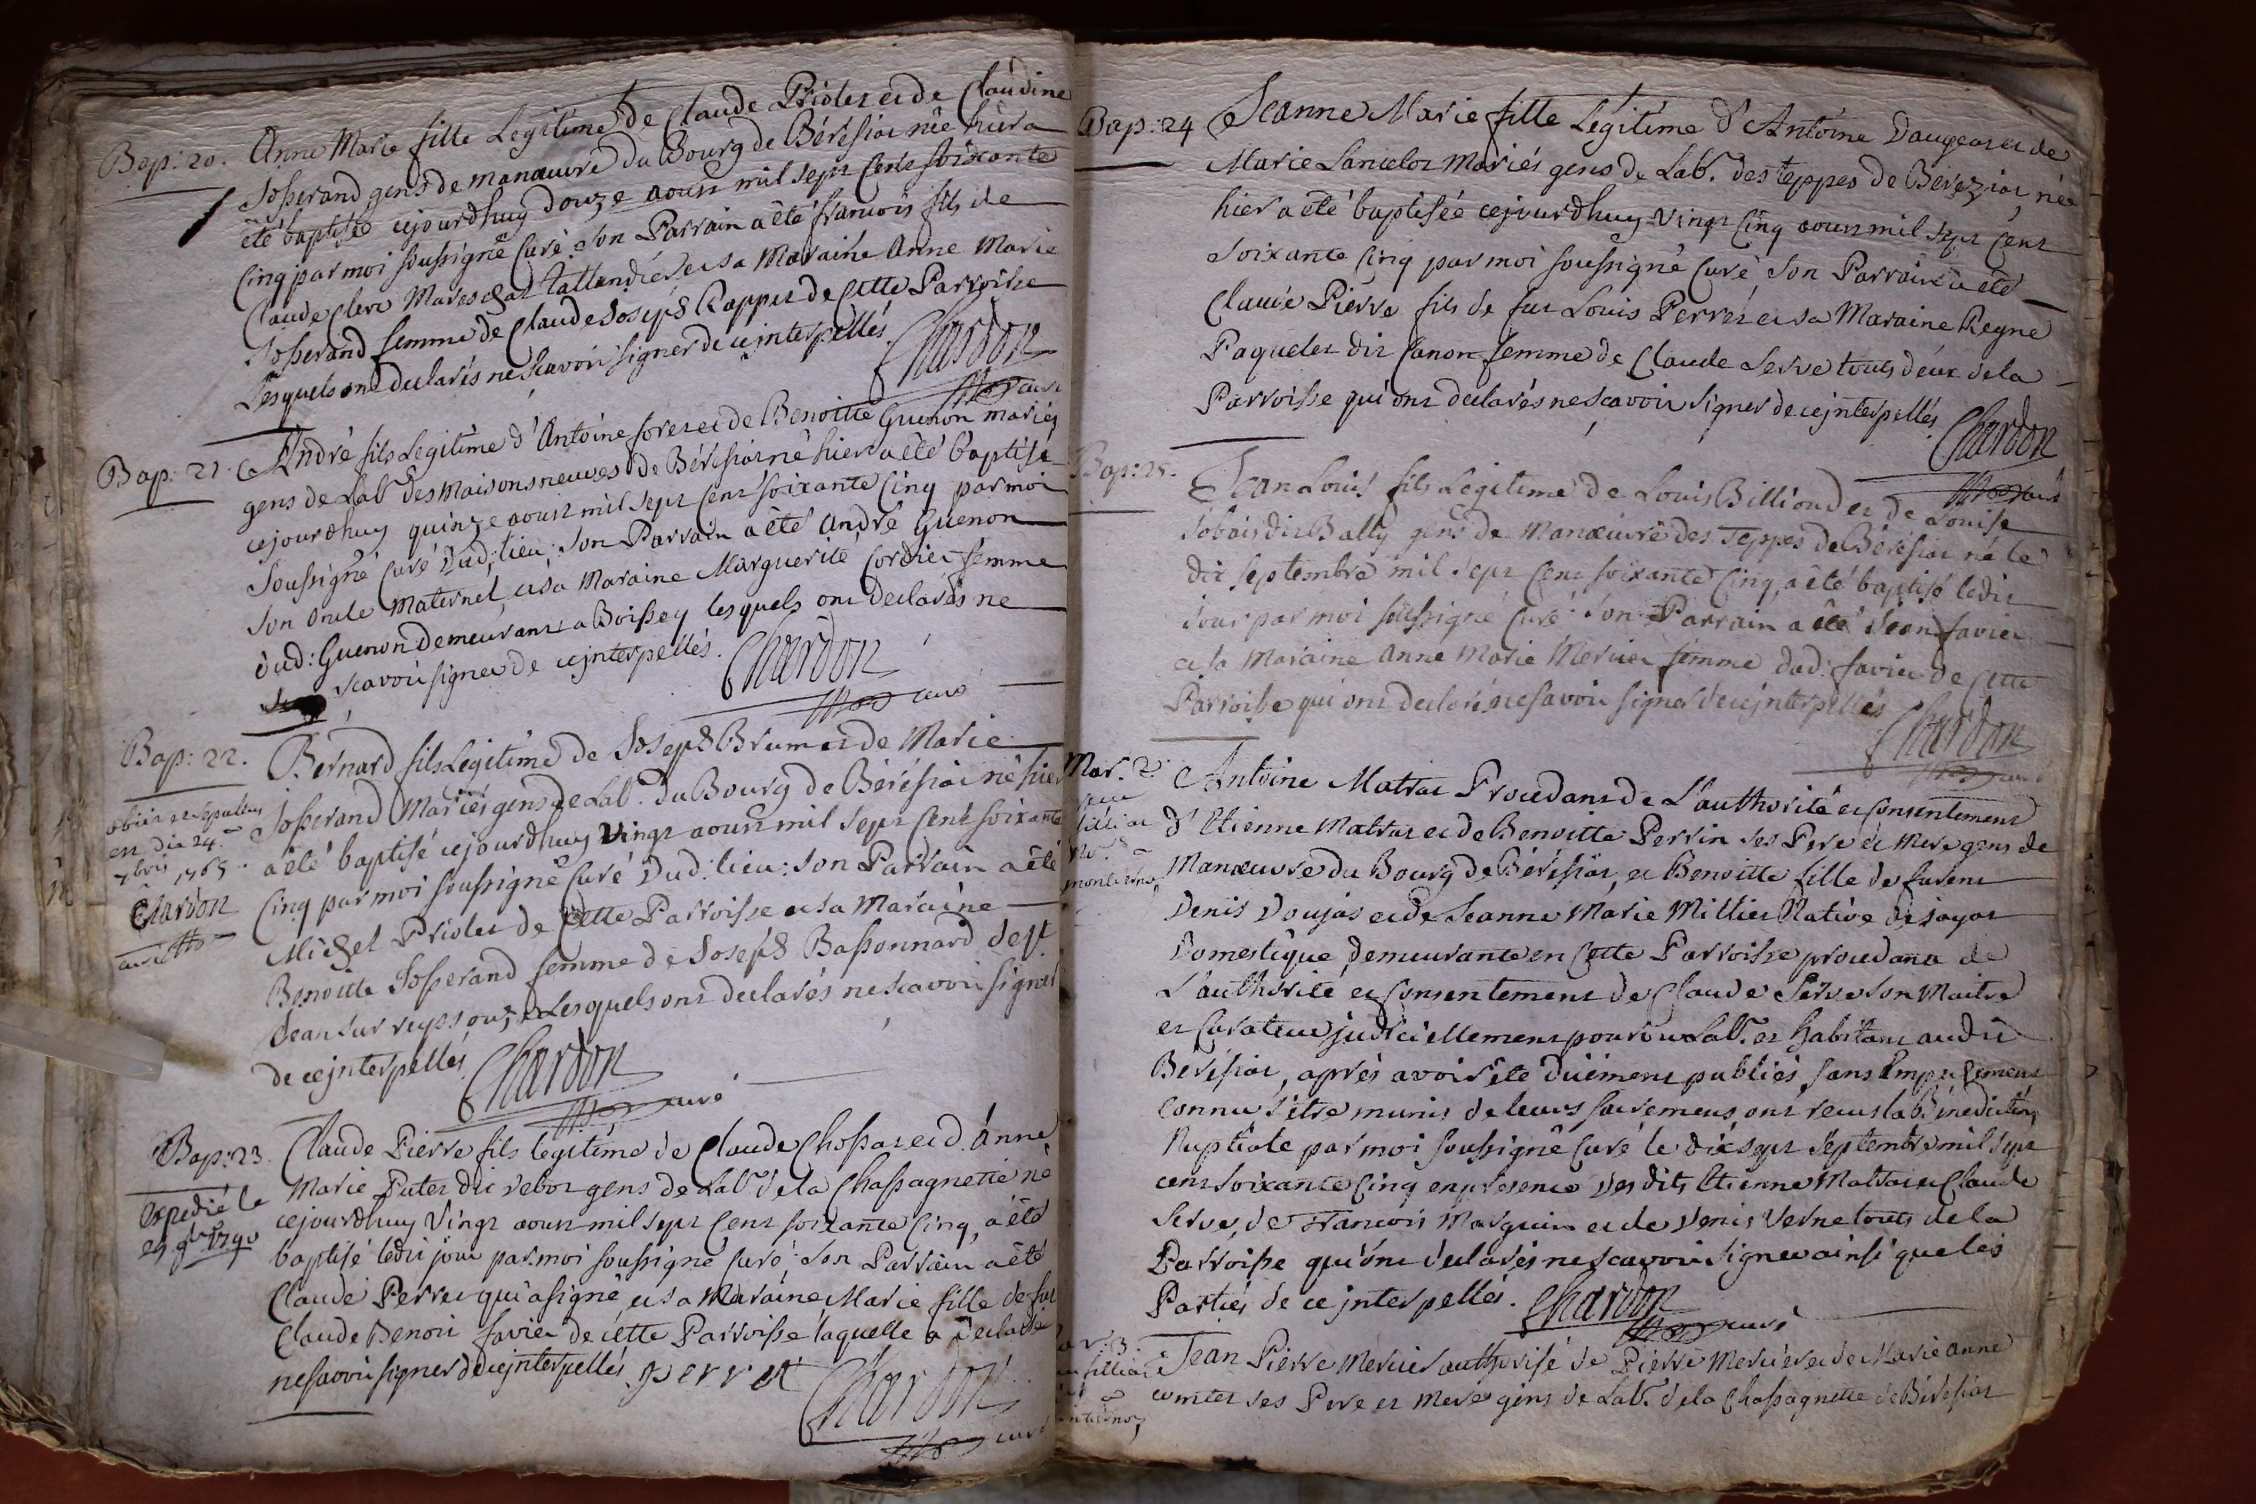 Bap: 20. Anne Marie fille Legitime de Claude Priolet et de Claudine
Josserand gens de manœuvre du Bourg de Bérésiat née hier a
été baptisée cejourdhuy douze aoust mil sept cent soixante
Cinq par moi soussigné Curé son Parrain a été francois fils de
Claude Clerc Mareschal tallandier et sa Maraine Anne Marie
Josserand femme de Claude Joseph Rapper de Cette Parroisse
Lesquels ont declarés ne scavoir signer de ce jnterpellés.
Chardon
curé
Bap: 21. André fils Legitime d'Antoine foret et de Benoitte Guenon mariés
gens de Labr des Maisons neuves de Bérésiat né hier a été baptisé
cejourdhuy quinze aoust mil sept Cent soixante Cinq par moi
Soussigné Curé dud: lieu: son Parrain a été André Guenon
son oncle Maternel, et sa Maraine Marguerite Cordier femme
dud: Guenon demeurant a Boissey lesquels ont declarés ne
scavoir signer de ce jnterpellés.
Chardon
curé
Bap: 22. Bernard fils Legitime de Joseph Brum et de Marie
Josserand Mariés gens de Labr. du Bourg de Bérésiat né hier
a été baptisé cejourdhuy Vingt aoust mil sept Cent soixante
Cinq par moi soussigné Curé dud: lieu: son Parrain a été
Michel Priolet de Cette Parroisse et sa Maraine
Benoitte Josserand femme de Joseph Bassonnard de St
Jean sur reyssouze Lesquels ont declarés ne scavoir signer
de ce jnterpellés
Chardon
curé
obiit et sepultus
est die 24.
7bris 1765.
Chardon
curé
Bap: 23. Claude Pierre fils legitime de Claude Chossat et d'Anne
Marie Putet dit rebot gens de Labr de la Chassagnette né
cejourdhuy Vingt aoust mil sept Cent soixante Cinq, a été
baptisé ledit jour par moi soussigné Curé: son Parrain a été
Claude Perret qui a signé, et sa Maraine Marie fille de fut
Claude Benoit favier de cette Parroisse laquelle a declaré
ne savoir signer de ce jnterpellés perret
Chardon
curé
Expedié le
Bap: 24 Jeanne Marie fille Légitime d'Antoine Daugeat et de
Marie Lancelot Mariés gens de Lab. des teppes de Bereziat, née
hier a été baptisée cejourdhuy Vingt Cinq aoust mil sept Cent
soixante Cinq par moi soussigné Curé, son Parrain a été
Claude Pierre fils de fut Louis Perret et sa Maraine Reyne
Paquelet dit Canon femme de Claude Serve touts deux de la
Parroisse qui ont declarés ne scavoir signer de ce jnterpellés
Chardon
curé
Bap: 25. Jean Louis fils Légitime de Louis Billioud et de Louise
Jobais dit Bally gens de Manœuvre des Teppes de Bérésiat né le
dix septembre mil sept Cent soixante Cinq, a été baptisé ledit
Jour par moi soussigné Curé: son Parrain a été Jean favier
et sa Maraine Anne Marie Mercier femme dud: favier de Cette
Parroisse qui ont declaré ne savoir signer de ce jnterpellés
Chardon
curé
Mar. 2. Antoine Matrat Procedant de L'authorité et Consentement
d'Etienne Matrat et de Benoitte Perrin ses Pere et Mere gens de
Manœuvre du Bourg de Bérésiat, et Benoitte fille de furent
Denis Doujat et de Jeanne Marie Millier Native de jayat
Domestique, demeurante en Cette Parroisse procedant de
L'authorité et Consentement de Claude Serve son Maitre
et Curateur judiciellement pourvu Labr. et habitant audit
Bérésiat, après avoir été duëment publiés sans Empechement
connu s'etre munis de leurs sacremens, ont recus la Bénediction
Nuptiale par moi soussigné Curé le dix sept septembre mil sept
cent soixante Cinq en presence desdits Etienne Matrat et Claude
Serve, de Francois Marguin et de Denis Verne touts de la
Parroisse qui ont declarés ne scavoir signer ainsi que les
Parties de ce jnterpellés.
Chardon
curé
Jean Pierre Mercier authorisé de Pierre Mercier et de Marie Anne
comtet ses Pere et Mere gens de Labr. de la Chassagnette de Bérésiat